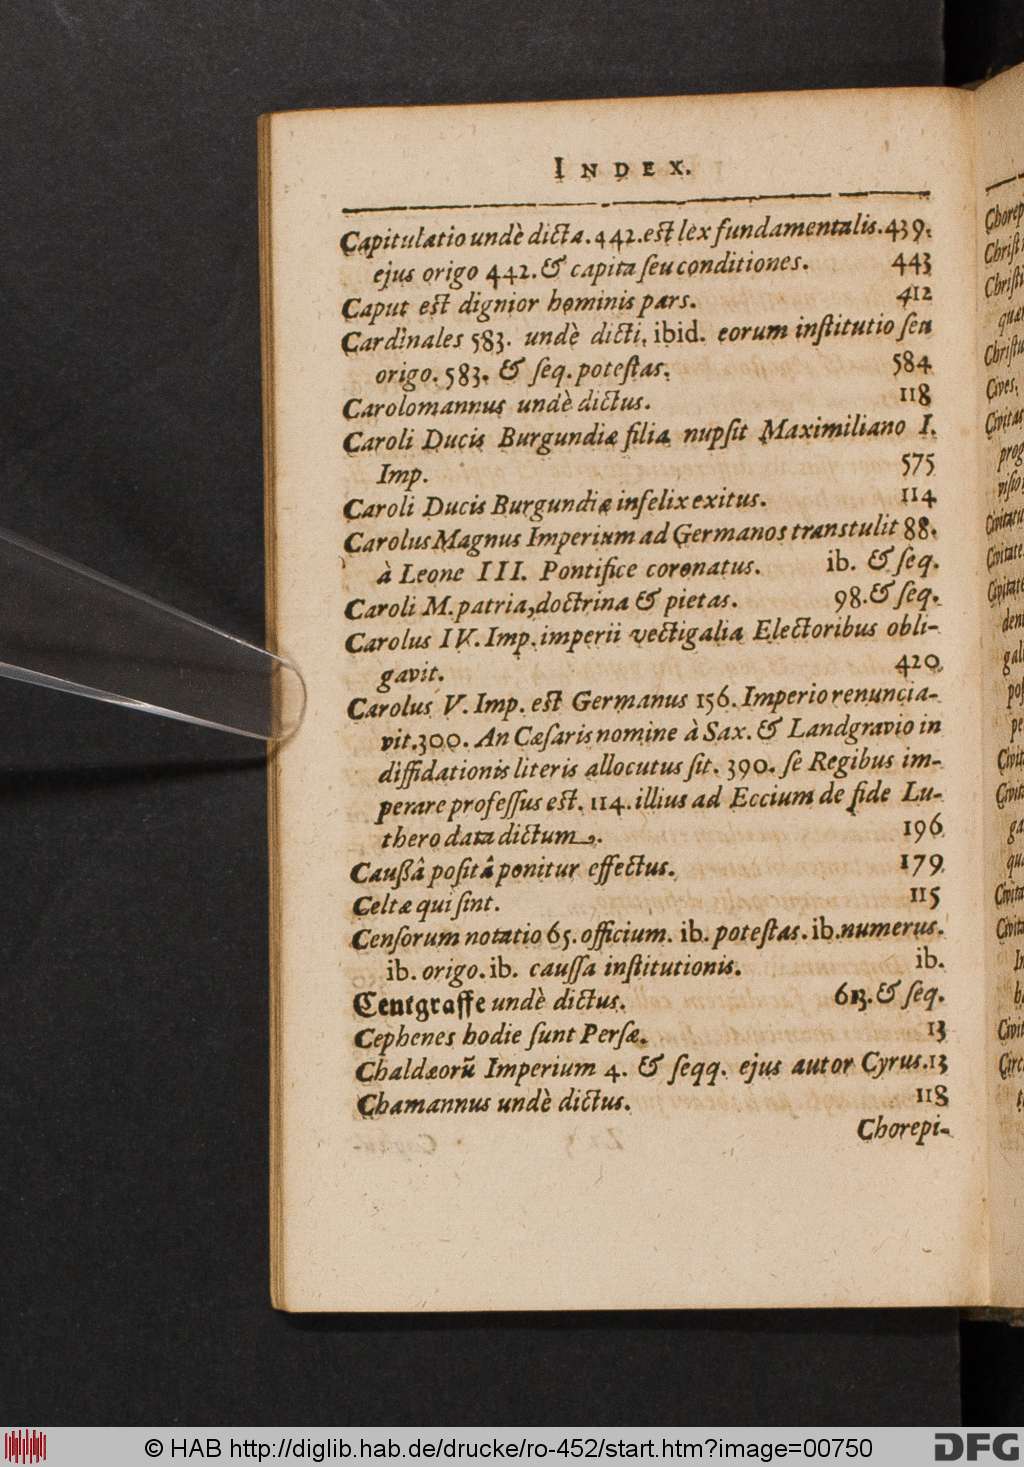 INDEX.
Capitulatio undè dicta. 442. est lex fundamentalis. 439.
ejus origo 442. & capita seu conditiones. 443
Caput est dignior hominis pars. 412
Cardinales 583. undè dicti, ibid. eorum institutio seu
origo. 583. & seq. potestas. 584
Carolomannus undè dictus. 118
Caroli Ducis Burgundiæ filia nupsit Maximiliano I.
Imp. 575
Caroli Ducis Burgundiæ infelix exitus. 114
Carolus Magnus Imperium ad Germanos transtulit 88.
à Leone III. Pontifice coronatus. ib. & seq.
Caroli M. patria, doctrina & pietas. 98. & seq.
Carolus IV. Imp. imperii vectigalia Electoribus obli-
gavit. 420
Carolus V. Imp. est Germanus 156. Imperio renuncia-
vit. 300. An Cæsaris nomine à Sax. & Landgravio in
diffidationis literis allocutus sit. 390. se Regibus im-
perare professus est. 114. illius ad Eccium de fide Lu-
thero data dictum. 196
Caußâ positâ ponitur effectus. 179
Celtæ qui sint. 115
Censorum notatio 65. officium. ib. potestas. ib. numerus.
ib. origo. ib. caussa institutionis. ib.
Centgraffe undè dictus. 613. & seq.
Cephenes hodie sunt Persæ. 13
Chaldæorũ Imperium 4. & seqq. ejus autor Cyrus. 13
Chamannus undè dictus. 118
Chorepi-
Chorep
Christi
Christi
Christu
Cives.
Civitas
prog
Civitatu
Civitate
Civitate
© HAB http://diglib.hab.de/drucke/ro-452/start.htm?image=00750
DFG